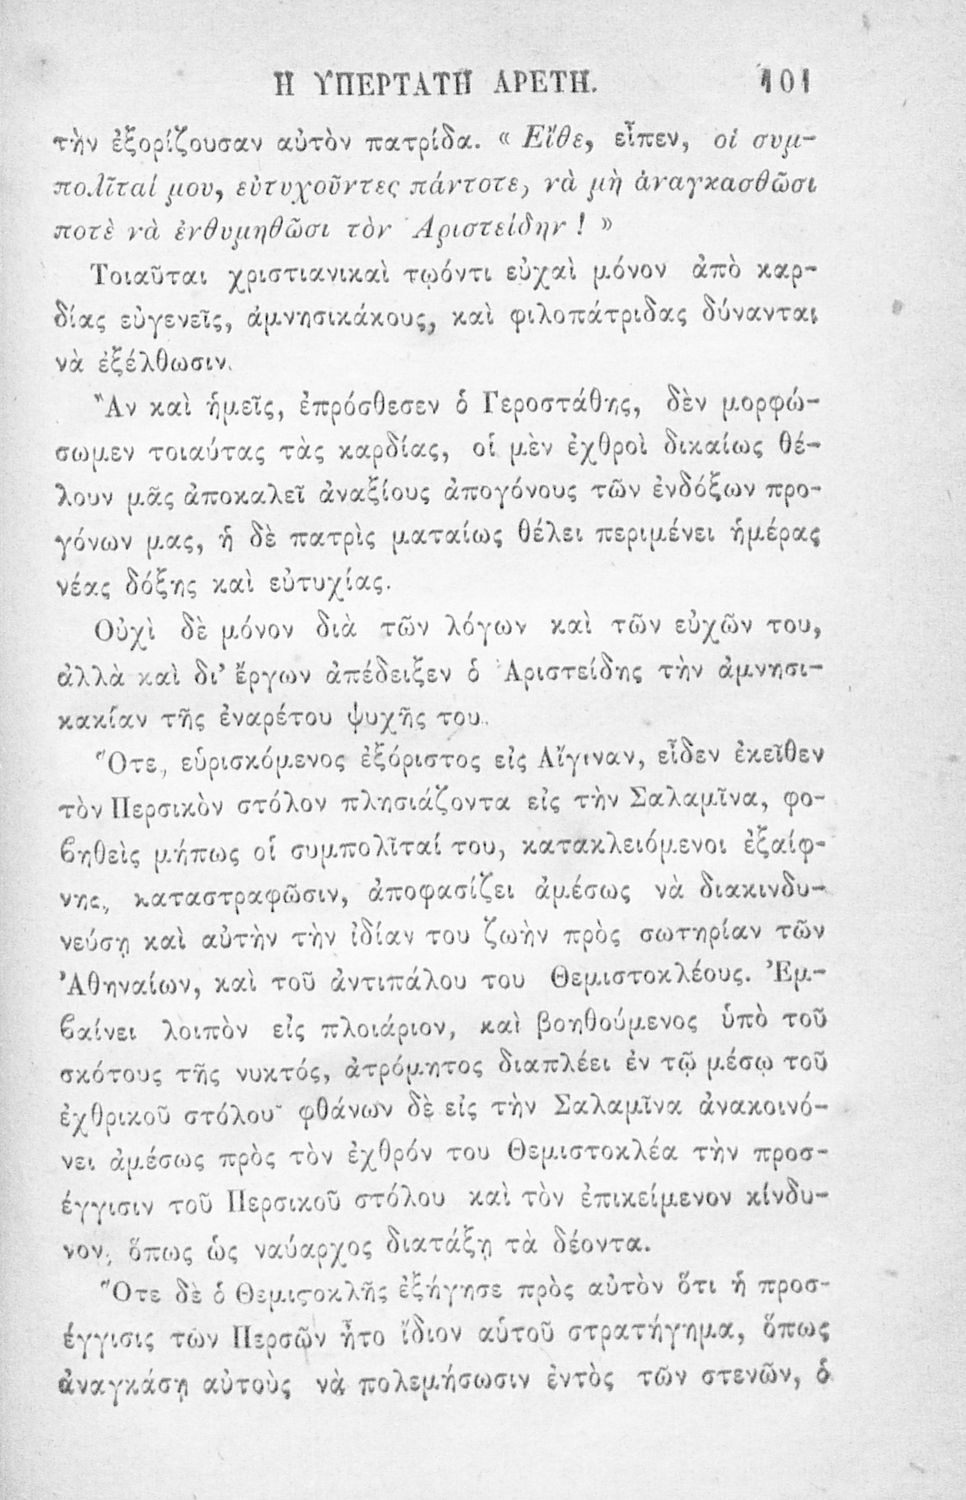 Η ΥΠΕΡΤΑΤΗ ΑΡΕΤΗ. 101
τὴν ἐξορίζουσαν αὐτὸν πατρίδα. « Εἴθε, εἶπεν, οἱ συμ-
πολῖταί μου, εὐτυχοῦντες πάντοτε, νὰ μὴ ἀναγκασθῶσι
ποτὲ νὰ ἐνθυμηθῶσι τὸν Ἀριστείδην ! »
Τοιαῦται χριστιανικαὶ τῳόντι εὐχαὶ μόνον ἀπὸ καρ-
δίας εὐγενεῖς, ἀμνησικάκους, καὶ φιλοπάτριδας δύνανται
νὰ ἐξέλθωσιν.
Ἂν καὶ ἡμεῖς, ἐπρόσθεσεν ὁ Γεροστάθης, δὲν μορφώ-
σωμεν τοιαύτας τὰς καρδίας, οἱ μὲν ἐχθροὶ δικαίως θέ-
λουν μᾶς ἀποκαλεῖ ἀναξίους ἀπογόνους τῶν ἐνδόξων προ-
γόνων μας, ἡ δὲ πατρὶς ματαίως θέλει περιμένει ἡμέρας
νέας δόξης καὶ εὐτυχίας.
Οὐχὶ δὲ μόνον διὰ τῶν λόγων καὶ τῶν εὐχῶν του,
ἀλλὰ καὶ δι' ἔργων ἀπέδειξεν ὁ Ἀριστείδης τὴν ἀμνησι-
κακίαν τῆς ἐναρέτου ψυχῆς του.
Ὅτε, εὑρισκόμενος ἐξόριστος εἰς Αἴγιναν, εἶδεν ἐκεῖθεν
τὸν Περσικὸν στόλον πλησιάζοντα εἰς τὴν Σαλαμῖνα, φο-
βηθεὶς μήπως οἱ συμπολῖταί του, κατακλειόμενοι ἐξαίφ-
νης, καταστραφῶσιν, ἀποφασίζει ἀμέσως νὰ διακινδυ-
νεύσῃ καὶ αὐτὴν τὴν ἰδίαν του ζωὴν πρὸς σωτηρίαν τῶν
Ἀθηναίων, καὶ τοῦ ἀντιπάλου του Θεμιστοκλέους. Ἐμ-
βαίνει λοιπὸν εἰς πλοιάριον, καὶ βοηθούμενος ὑπὸ τοῦ
σκότους τῆς νυκτός, ἀτρόμητος διαπλέει ἐν τῷ μέσῳ τοῦ
ἐχθρικοῦ στόλου· φθάνων δὲ εἰς τὴν Σαλαμῖνα ἀνακοινό-
νει ἀμέσως πρὸς τὸν ἐχθρόν του Θεμιστοκλέα τὴν προσ-
έγγισιν τοῦ Περσικοῦ στόλου καὶ τὸν ἐπικείμενον κίνδυ-
νον, ὅπως ὡς ναύαρχος διατάξῃ τὰ δέοντα.
Ὅτε δὲ ὁ Θεμιϛοκλῆς ἐξήγησε πρὸς αὐτὸν ὅτι ἡ προσ-
έγγισις τῶν Περσῶν ἦτο ἴδιον αὑτοῦ στρατήγημα, ὅπως
ἀναγκάσῃ αὐτοὺς νὰ πολεμήσωσιν ἐντὸς τῶν στενῶν, ὁ